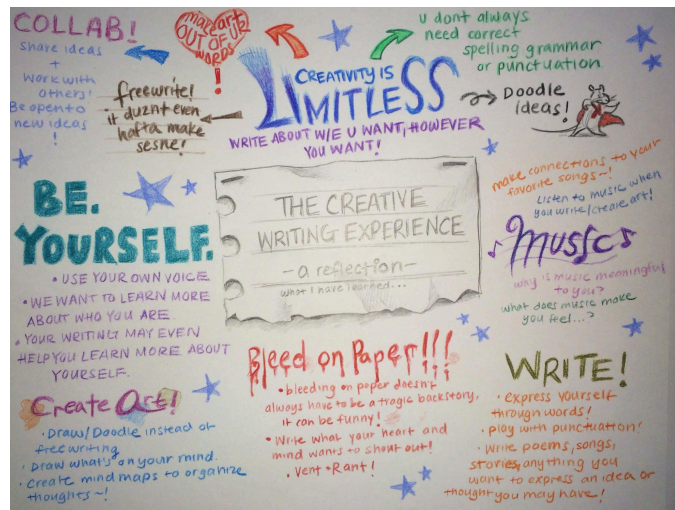 COLLAB!
Share ideas
+
Work with
others!
Be open to
new ideas
!
make art
OUT OF UR
WORDS
!
freewrite!
it duznt even
hafta make
sesne!
CREATIVITY IS
LIMITLESS
WRITE ABOUT W/E U WANT, HOWEVER
YOU WANT!
u dont always
need correct
spelling grammar
or punctuation
Doodle
ideas!
BE.
YOURSELF.
• USE YOUR OWN VOICE
• WE WANT TO LEARN MORE
ABOUT WHO YOU ARE
• YOUR WRITING MAY EVEN
HELP YOU LEARN MORE ABOUT
YOURSELF.
THE CREATIVE
WRITING EXPERIENCE
- a reflection -
what I have learned...
make connections to your
favorite songs~!
Listen to music when
you write/create art!
Music
why is music meaningful
to you?
what does music make
you feel...?
Create Art!
• Draw/Doodle instead of
freewriting
• Draw what's on your mind.
• Create mind maps to organize
thoughts~!
Bleed on Paper!!!
• bleeding on paper doesn't
always have to be a tragic backstory,
it can be funny!
• Write what your heart and
mind wants to shout out!
• Vent • Rant!
WRITE!
• express yourself
through words!
• play with punctuation!
• Write poems, songs,
stories, anything you
want to express an idea or
thought you may have!